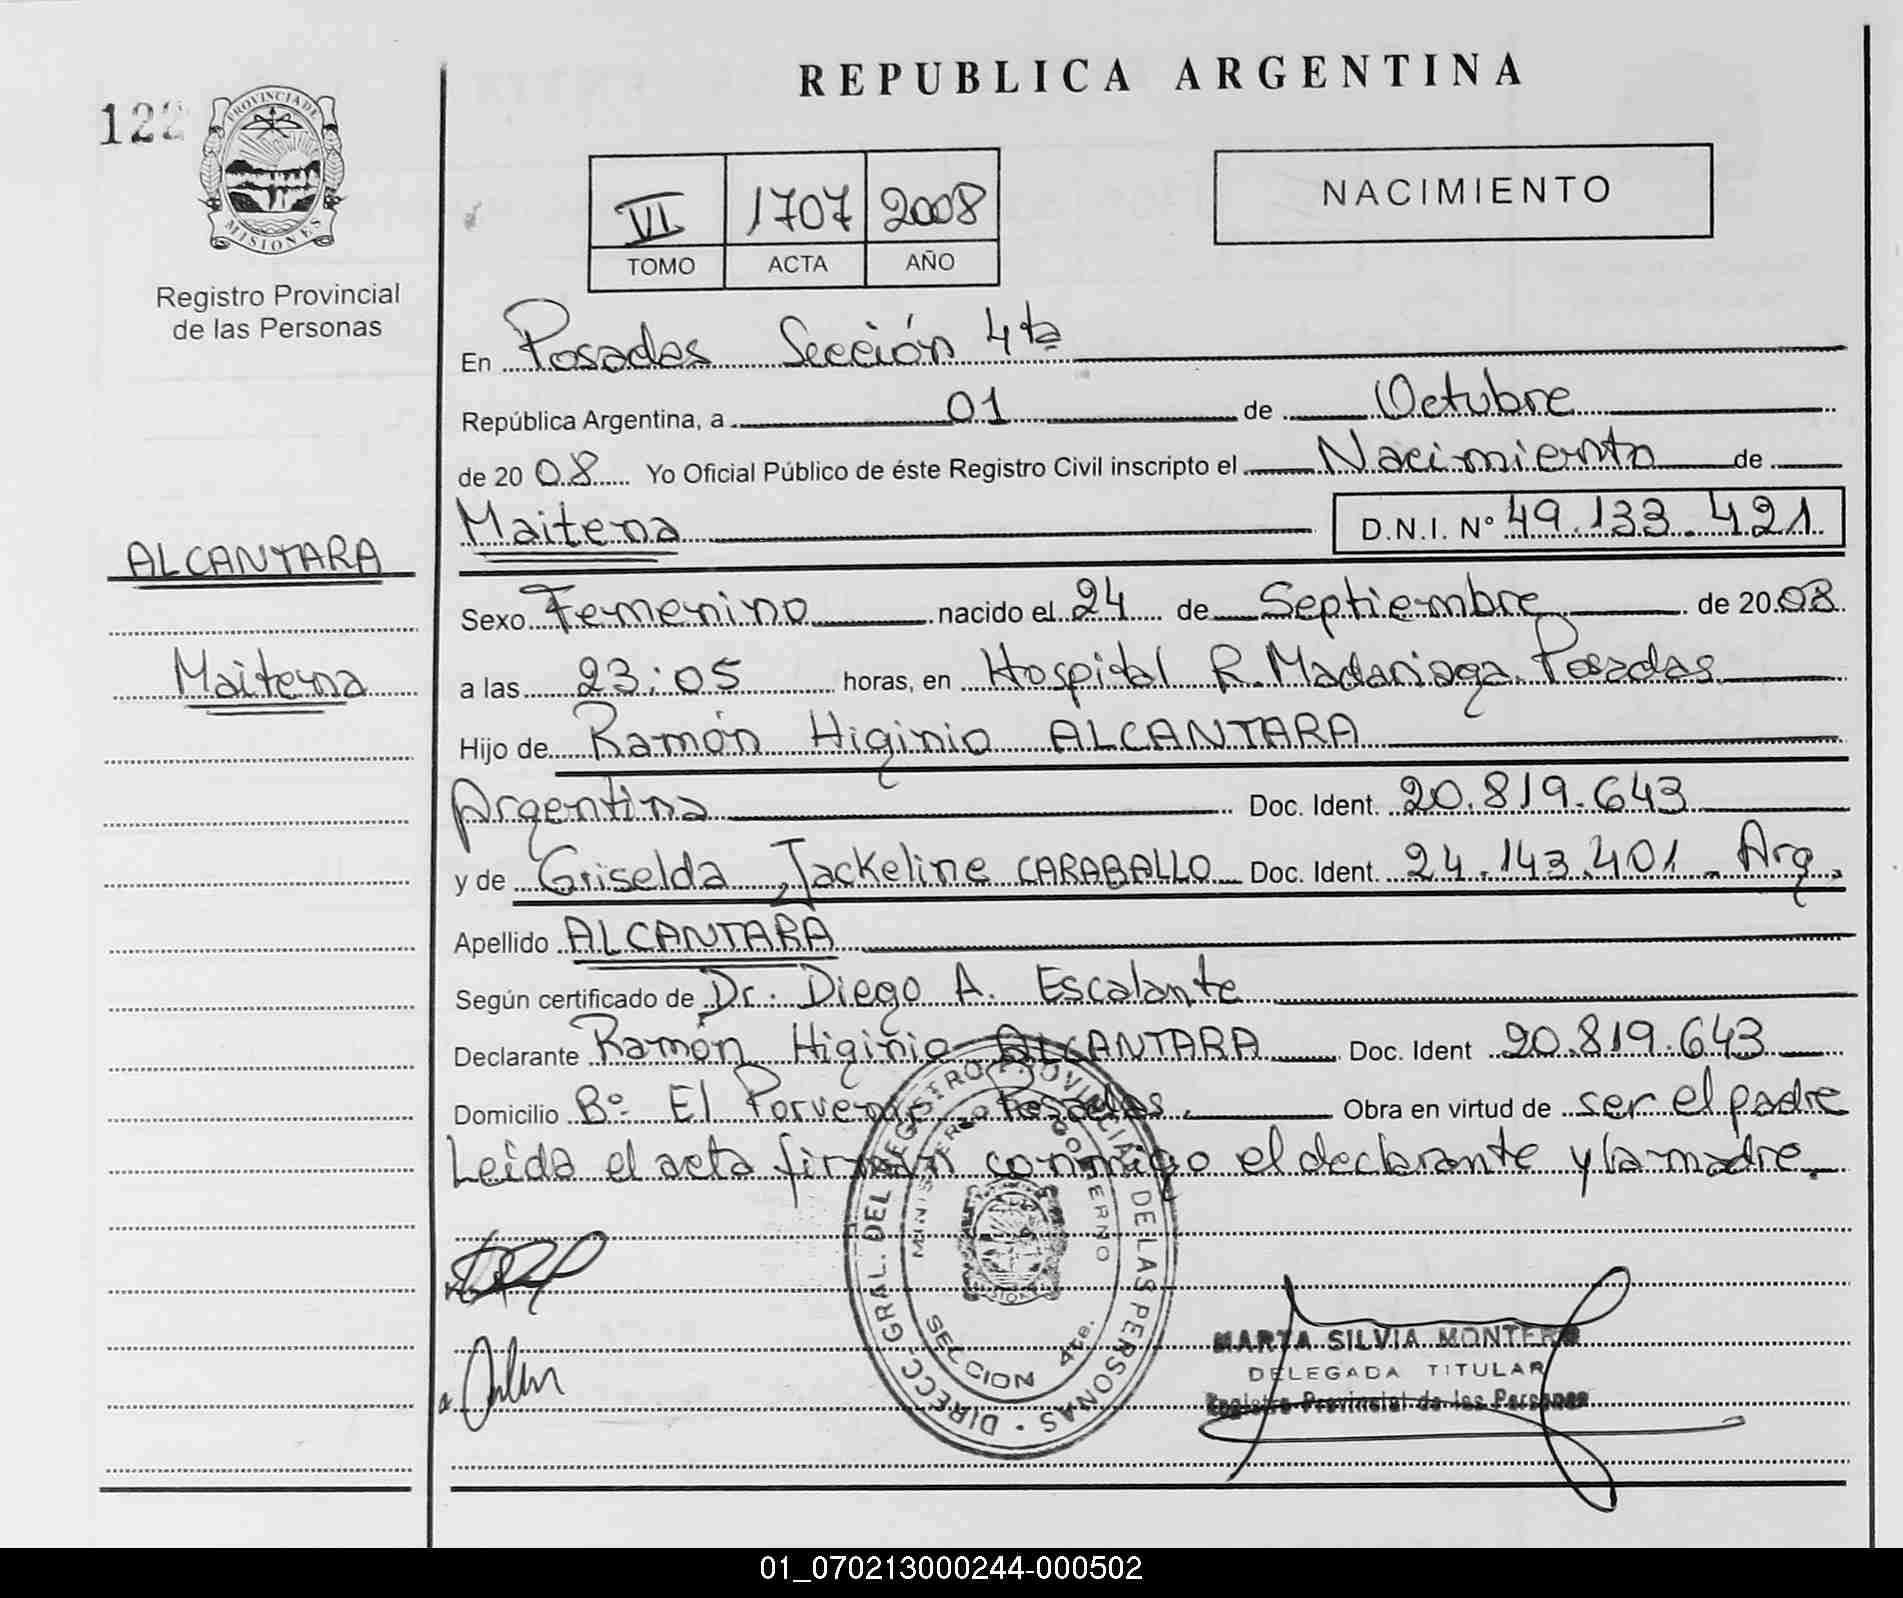 REPUBLICA ARGENTINA
122
PROVINCIA DE
MISIONES
Registro Provincial
de las Personas
VI 1707 2008
TOMO ACTA AÑO
NACIMIENTO
ALCANTARA
Maitena
En Posadas Sección 4ta
República Argentina, a 01 de Octubre
de 2008 Yo Oficial Público de éste Registro Civil inscripto el Nacimiento de
Maitena D.N.I. Nº 49.133.421
Sexo Femenino nacido el 24 de Septiembre de 2008
a las 23:05 horas, en Hospital R. Madariaga. Posadas
Hijo de Ramón Higinio ALCANTARA
Argentina Doc. Ident. 20.819.643
y de Griselda Jackeline CARABALLO Doc. Ident. 24.143.401 - Arg.
Apellido ALCANTARA
Según certificado de Dr. Diego A. Escalante
Declarante Ramón Higinio ALCANTARA Doc. Ident 20.819.643
Domicilio Bº El Porvenir - Posadas. Obra en virtud de ser el padre
Leída el acta firman conmigo el declarante y la madre.
DIRECC. GRAL. DEL REGISTRO PROVINCIAL DE LAS PERSONAS
MINISTERIO DE GOBIERNO
MISIONES
SECCION 4ta.
MARTA SILVIA MONTERO
DELEGADA TITULAR
Registro Provincial de las Personas
01_070213000244-000502